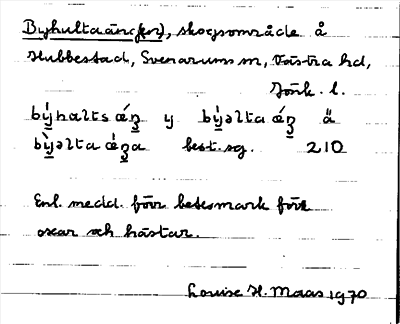 Byhultaäng(en), skogsområde å
Hubbestad, Svenarums sn, Västra hd,
Jönk. l.
bẏhaltsǽŋ y bẏəltaǽŋ ä
bẏəltaǽŋa best. sg. 210
Enl. medd. förr betesmark för
oxar och hästar.
Louise H. Maas 1970